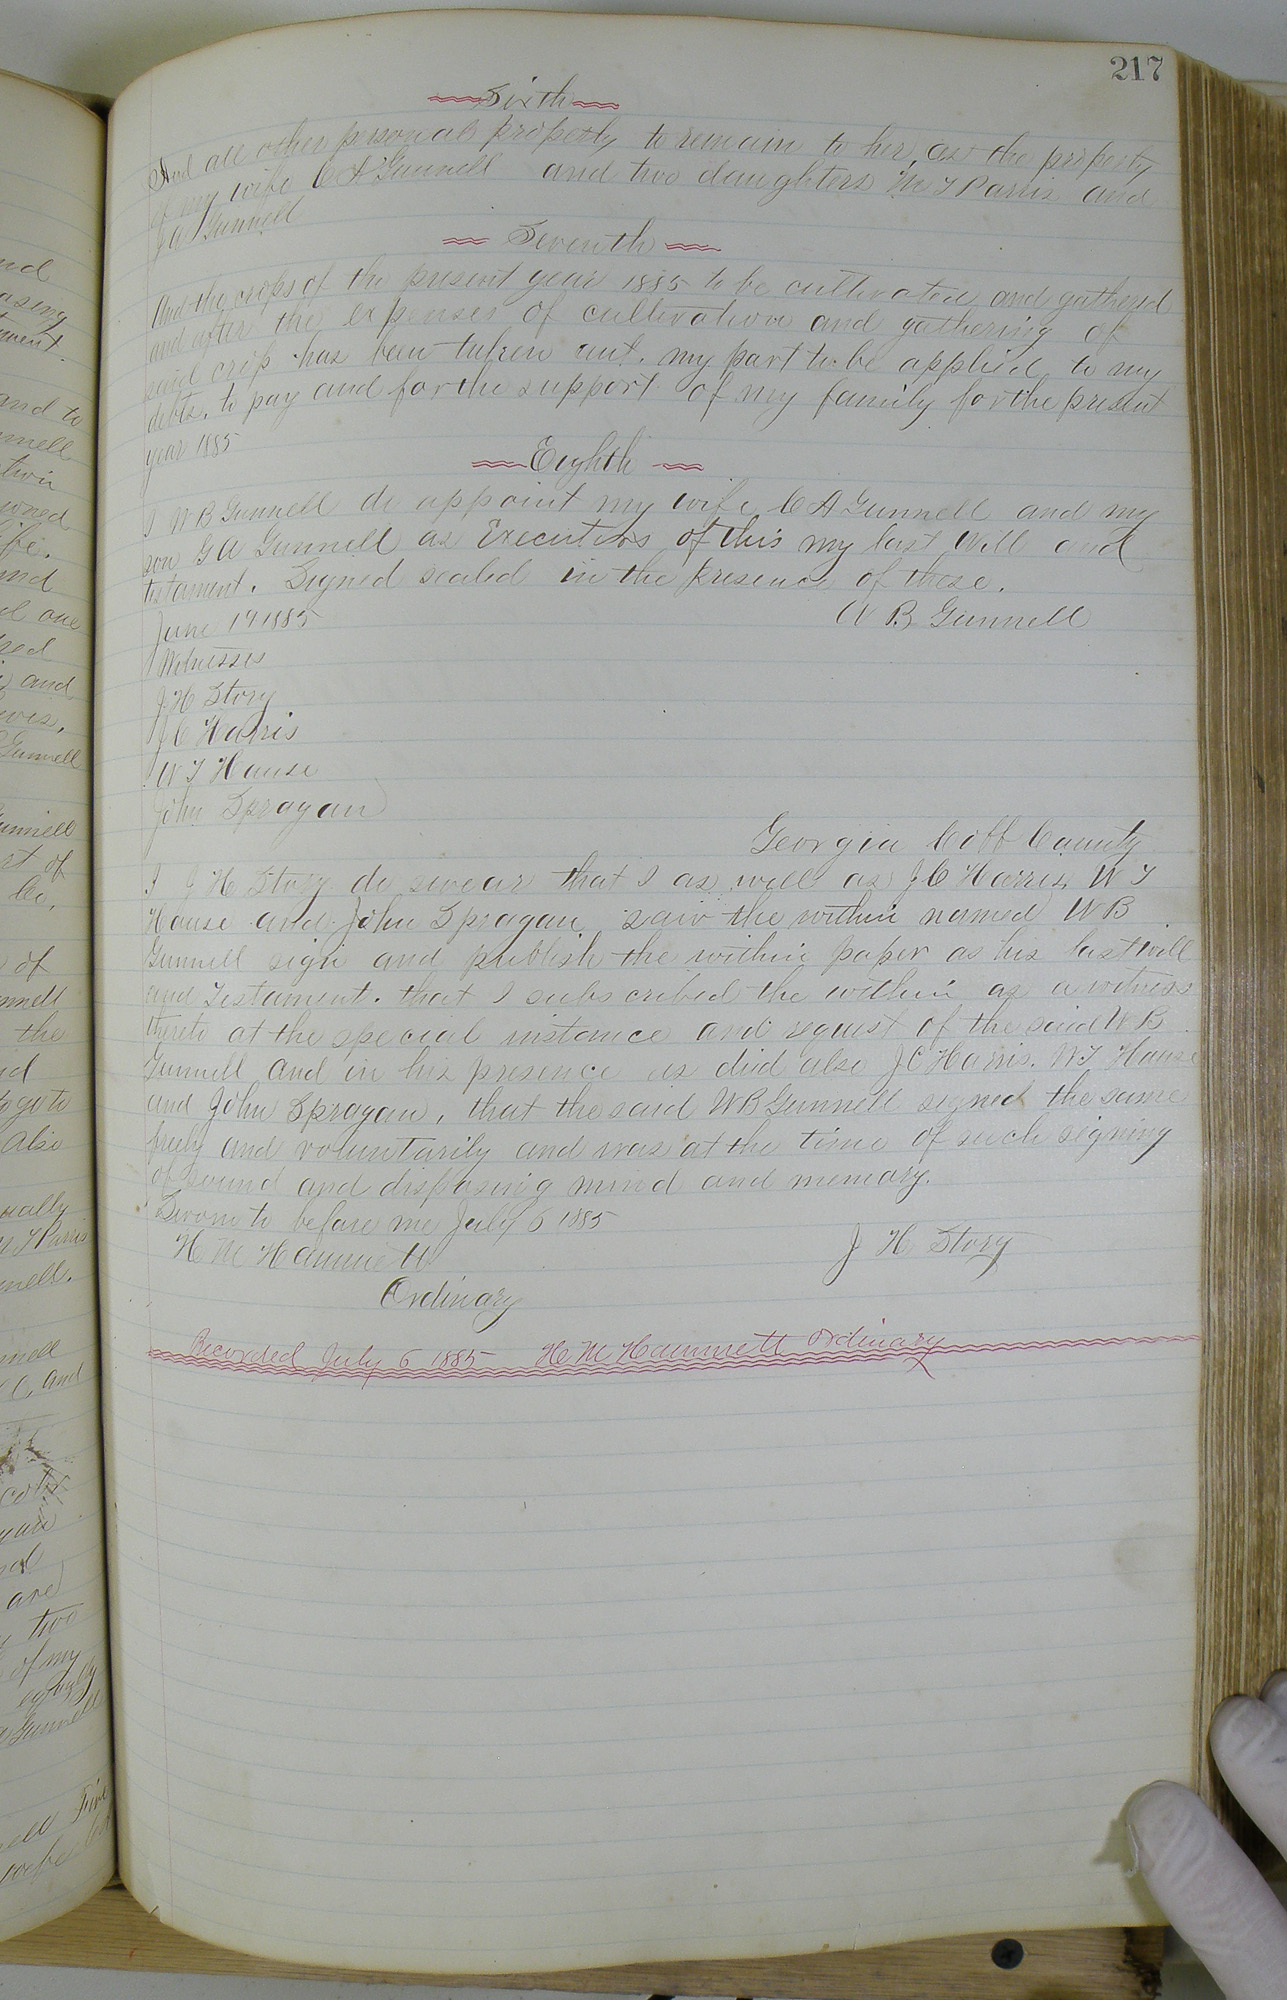 217
Sixth
And all other personal property to remain to her, as the property
of my wife C A Gunnell and two daughters M T Parris and
J A Gunnell
Seventh
And the crops of the present year 1885 to be cultivated and gathered
and after the expenses of cultivation and gathering of
said crop has been taken out. my part to be applied to my
debts. to pay and for the support of my family for the present
year 1885
Eighth
I W B Gunnell do appoint my wife C A Gunnell and my
son G A Gunnell as Executors of this my last Will and
testament. Signed sealed in the presence of these.
June 17 1885 W B Gunnell
Witnesses
J. H Story
J C Harris
W T House
John Spragan
Georgia Cobb County
I J H Story do swear that I as well as J C Harris, W T
House and John Spragan, saw the within named W B
Gunnell sign and publish the within paper as his last will
and Testament. that I subscribed the within as a witness
thereto at the special instance and request of the said W B
Gunnell and in his presence as did also J C Harris. W T House
and John Spragan, that the said W B Gunnell signed the same
freely and voluntarily and was at the time of such signing
of sound and disposing mind and memory.
Sworn to before me July 6 1885
H M Hammett J H Story
Ordinary
Recorded July 6 1885 H M Hammett Ordinary